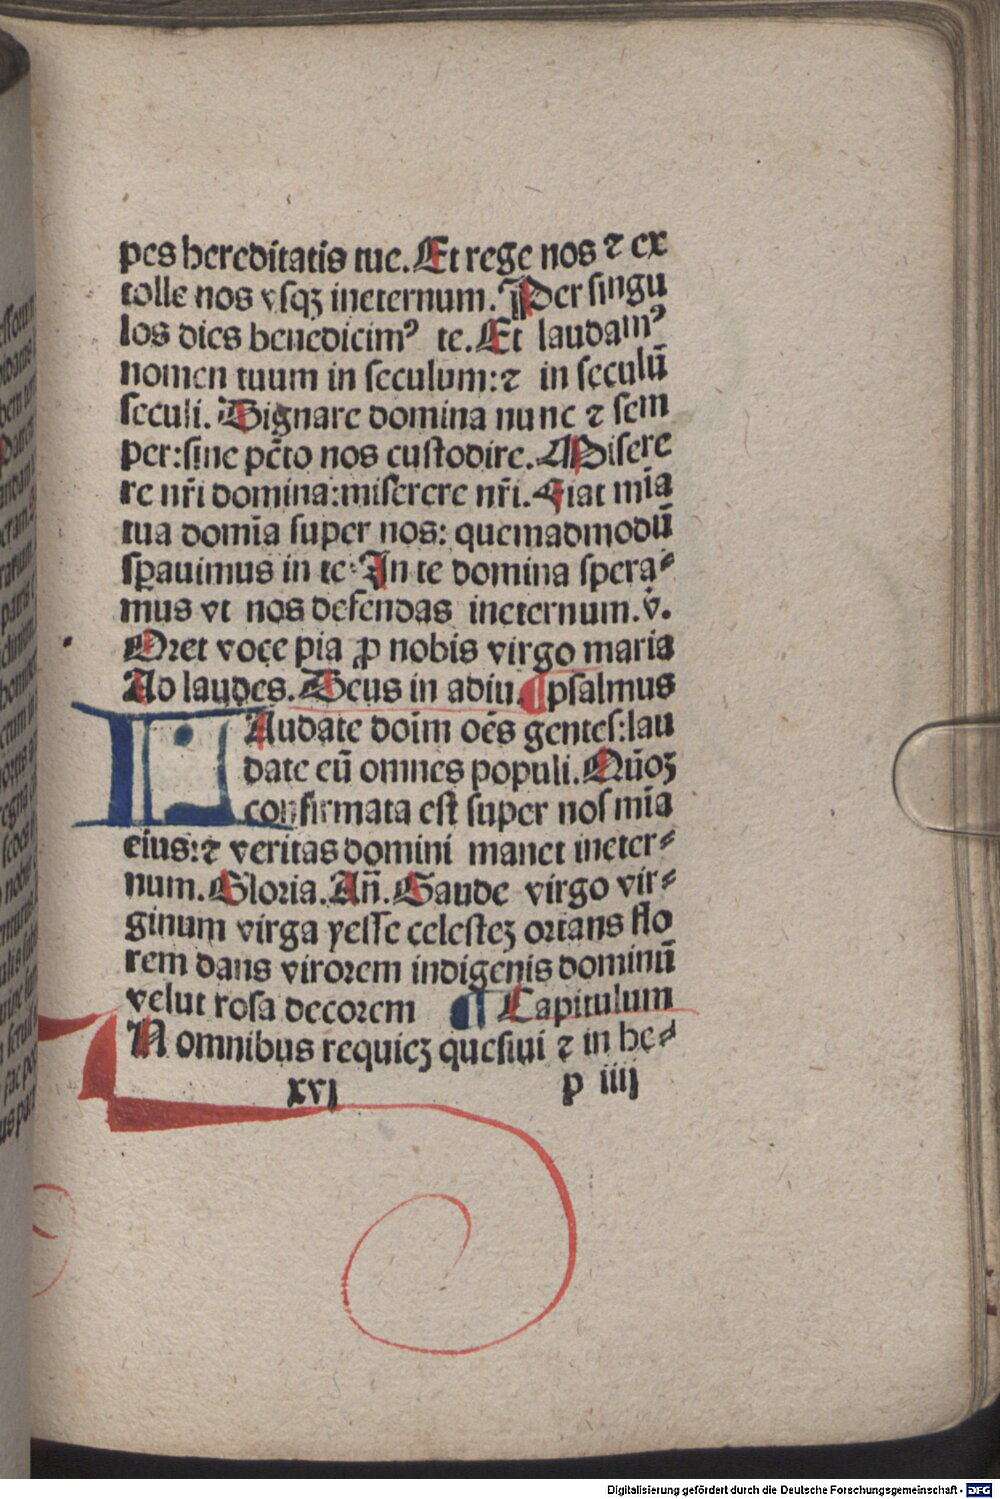 pes hereditatis tue. Et rege nos ⁊ ex
tolle nos vsqꝫ ineternum. Per singu
los dies benedicimꝰ te. Et laudamꝰ
nomen tuum in seculum: ⁊ in seculū
seculi. Dignare domina nunc ⁊ sem
per: sine pctō nos custodire. Misere
re nr̄i domina: miserere nr̄i. Fiat mīa
tua domīa super nos: quemadmodū
sꝑauimus in te. In te domina spera⸗
mus vt nos defendas ineternum. v̇.
Oret voce pia ꝓ nobis virgo maria
Ad laudes. Deus in adiu. ¶ psalmus
LAudate doīm oēs gentes: lau
date eū omnes populi. Qm̄ oꝫ
confirmata est super nos mīa
eius: ⁊ veritas domini manet ineter⸗
num. Gloria. An̄. Gaude virgo vir⸗
ginum virga yesse celesteꝫ ortans flo
rem dans virorem indigenis dominū
velut rosa decorem ¶ Capitulum
IN omnibus requieꝫ quesiui ⁊ in he⸗
xvj p iiij
Digitalisierung gefördert durch die Deutsche Forschungsgemeinschaft - DFG